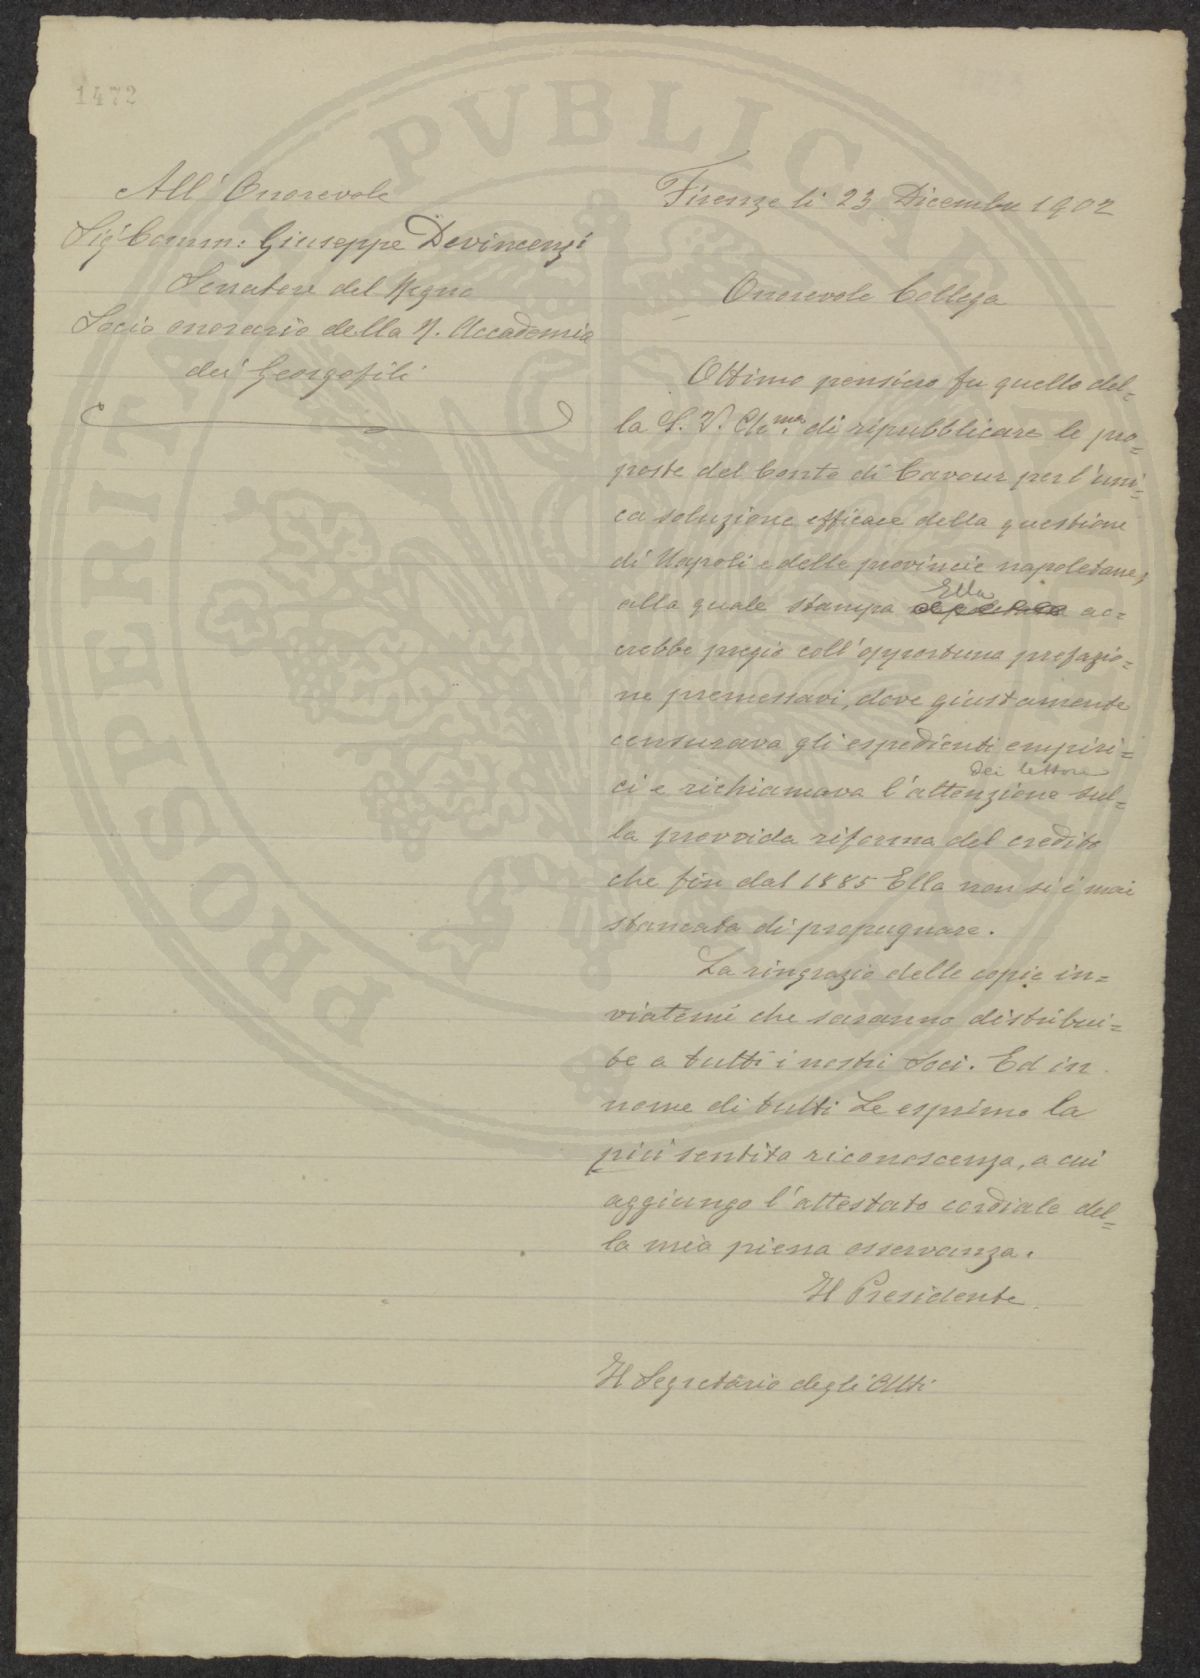 1472
All' Onorevole
Sigr Comm: Giuseppe Devincenzi
Senatore del Regno
Socio onorario della R. Accademia
dei Georgofili
Firenze li 23 Dicembre 1902
Onorevole Collega
Ottimo pensiero fu quello del=
la S. V. Ch.ma di ripubblicare le pro=
poste del Conte di Cavour per l'uni=
ca soluzione efficace della questione
di Napoli e delle provincie napoletane,
alla quale stampa Ella ac=
crebbe pregio coll'opportuna prefazio=
ne premessavi, dove giustamente
censurava gli espedienti empiri=
ci e richiamava l'attenzione dei lettori sul=
la provvida riforma del credito
che fin dal 1885 Ella non si è mai
stancata di propugnare.
La ringrazio delle copie in=
viatemi che saranno distribui=
te a tutti i nostri Soci. Ed in
nome di tutti Le esprimo la
più sentita riconoscenza, a cui
aggiungo l'attestato cordiale del=
la mia piena osservanza.
Il Presidente
Il Segretario degli Atti
PROSPERITATI PVBLICAE